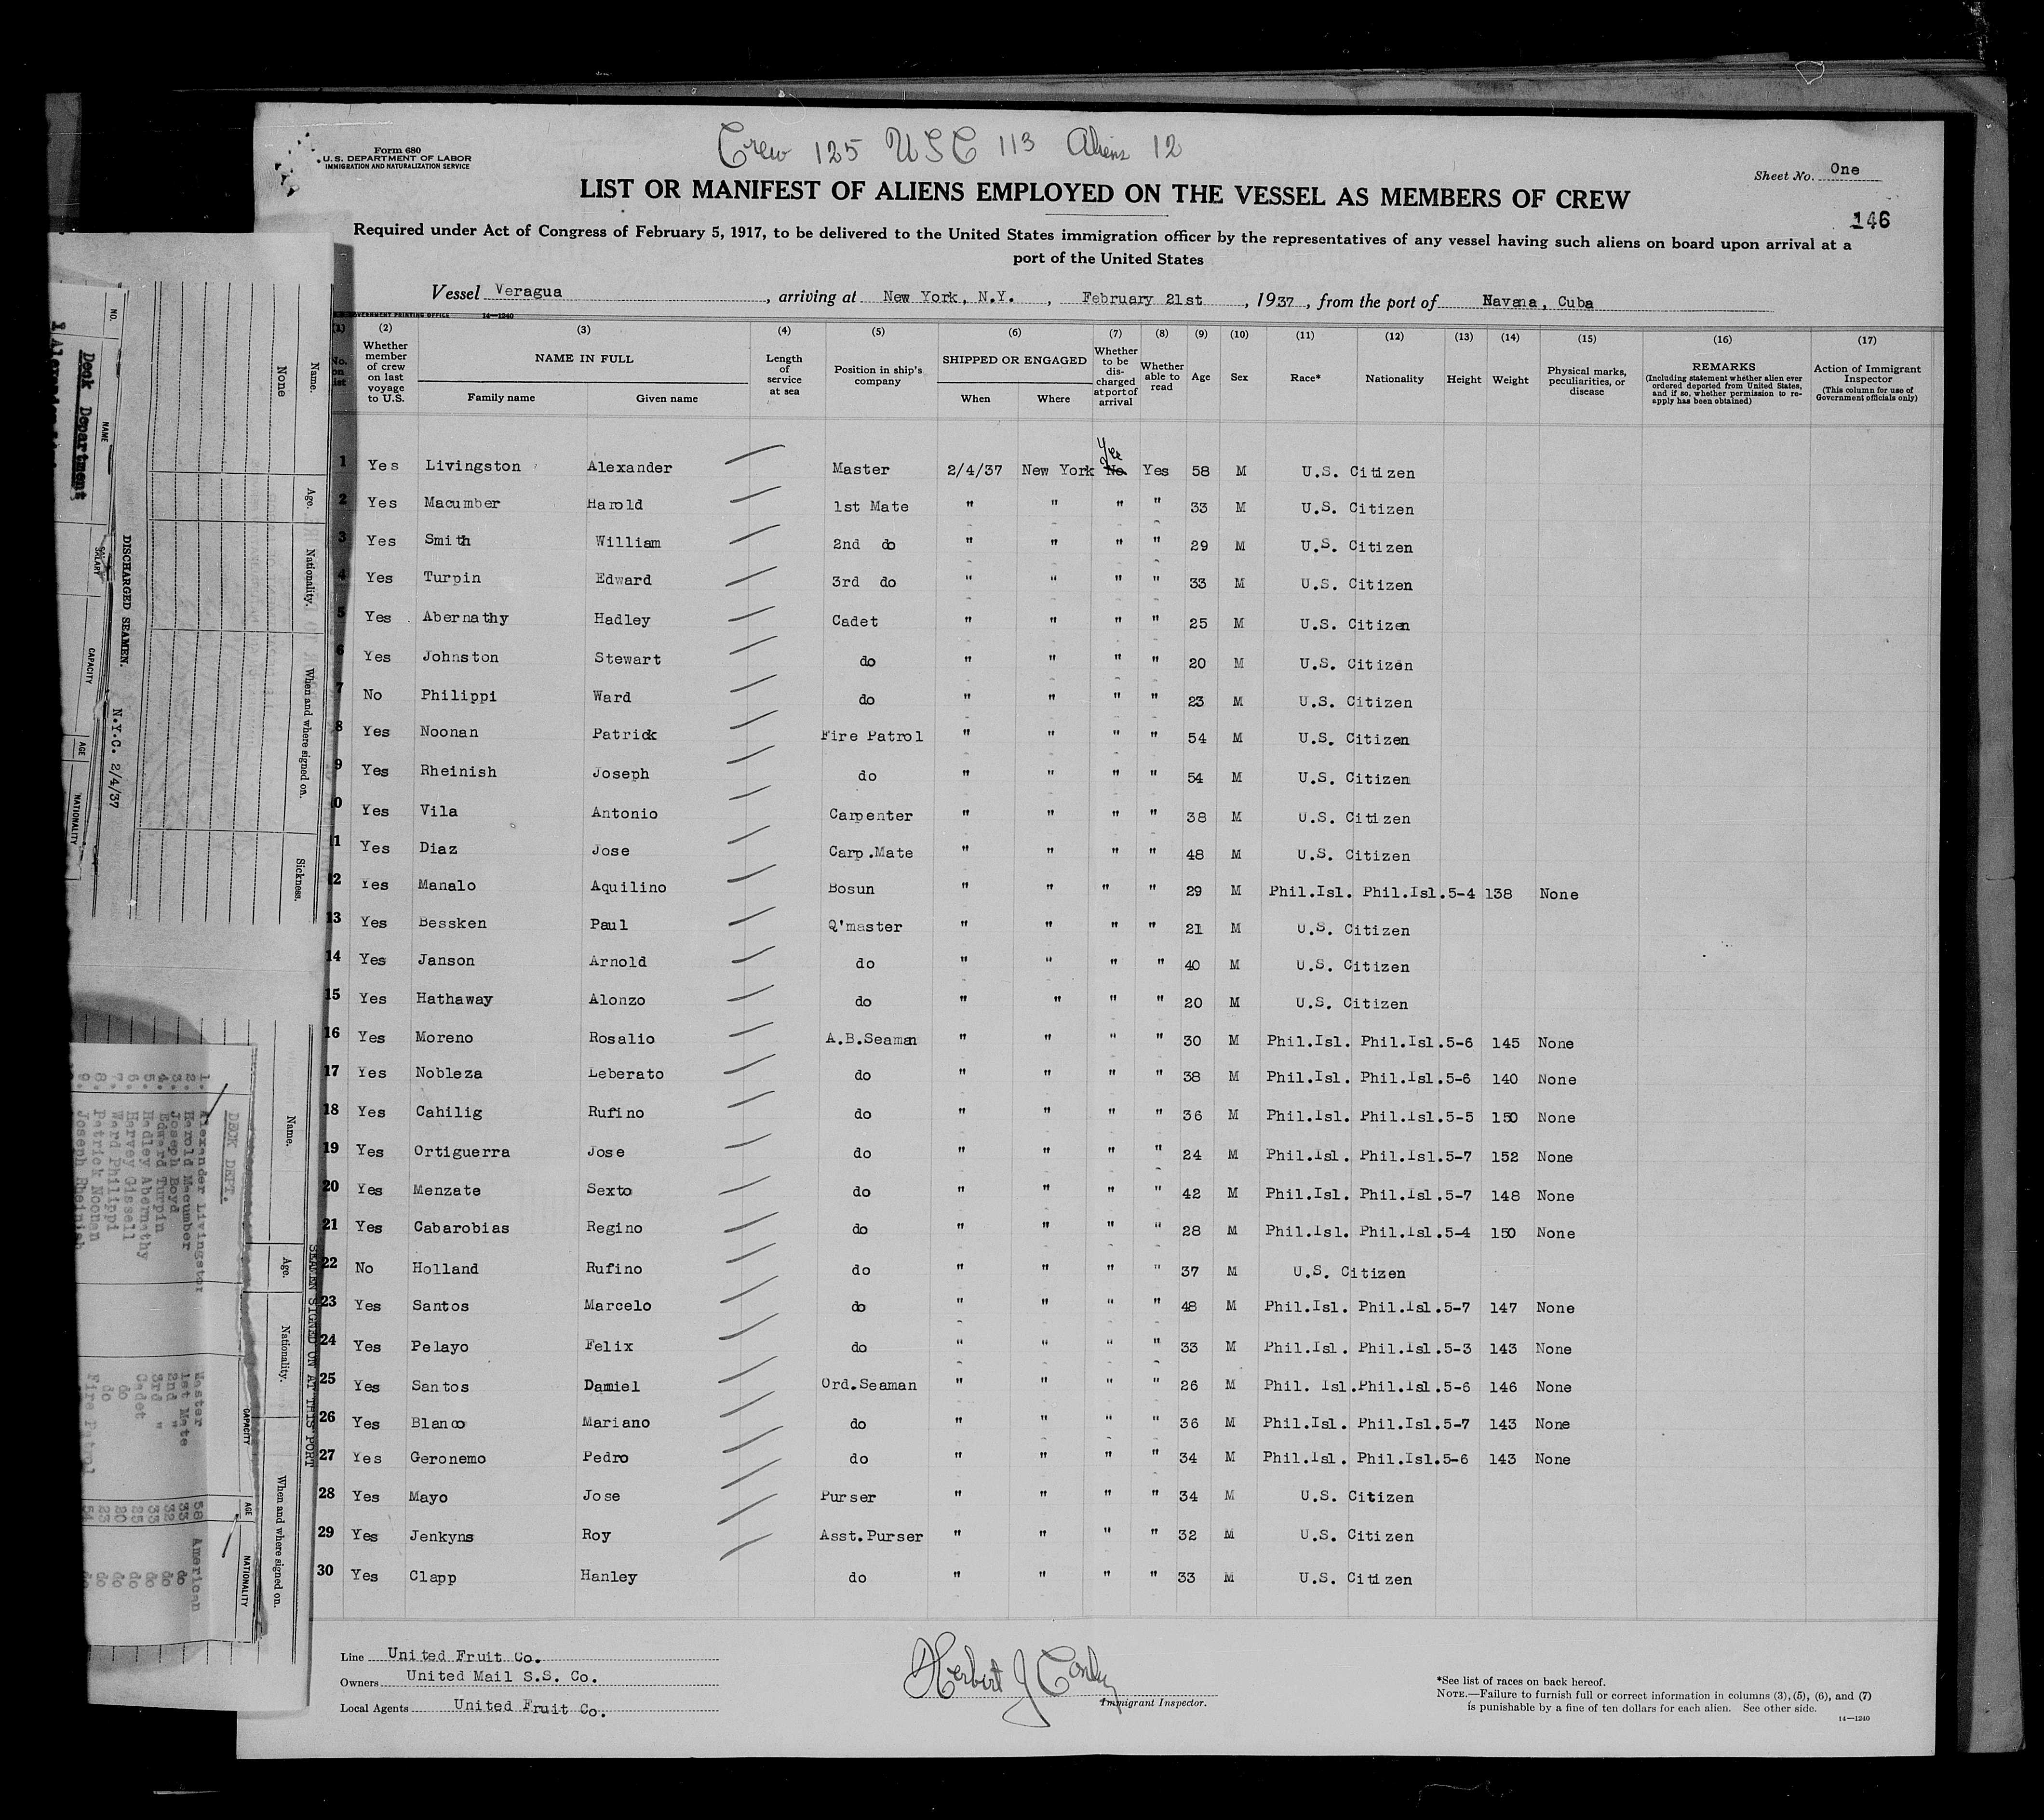 Crew 125 USC 113 Aliens 12
Form 680
U.S. DEPARTMENT OF LABOR
IMMIGRATION AND NATURALIZATION SERVICE
Sheet No. One
LIST OR MANIFEST OF ALIENS EMPLOYED ON THE VESSEL AS MEMBERS OF CREW
146
Required under Act of Congress of February 5, 1917, to be delivered to the United States immigration officer by the representatives of any vessel having such aliens on board upon arrival at a
port of the United States
Vessel Veragua, arriving at New York, N.Y., February 21st, 1937, from the port of Havana, Cuba
GOVERNMENT PRINTING OFFICE 14—1240
(1) (2) (3) (4) (5) (6) (7) (8) (9) (10) (11) (12) (13) (14) (15) (16) (17)
No. on list
Whether member of crew on last voyage to U.S.
NAME IN FULL
Family name Given name
Length of service at sea
Position in ship's company
SHIPPED OR ENGAGED
When Where
Whether to be discharged at port of arrival
Whether able to read
Age
Sex
Race*
Nationality
Height
Weight
Physical marks, peculiarities, or disease
REMARKS
(Including statement whether alien ever ordered deported from United States, and if so, whether permission to reapply has been obtained)
Action of Immigrant Inspector
(This column for use of Government officials only)
Yes
1 Yes Livingston Alexander Master 2/4/37 New York No Yes 58 M U.S. Citizen
2 Yes Macumber Harold 1st Mate " " " " 33 M U.S. Citizen
3 Yes Smith William 2nd do " " " " 29 M U.S. Citizen
4 Yes Turpin Edward 3rd do " " " " 33 M U.S. Citizen
5 Yes Abernathy Hadley Cadet " " " " 25 M U.S. Citizen
6 Yes Johnston Stewart do " " " " 20 M U.S. Citizen
7 No Philippi Ward do " " " " 23 M U.S. Citizen
8 Yes Noonan Patrick Fire Patrol " " " " 54 M U.S. Citizen
9 Yes Rheinish Joseph do " " " " 54 M U.S. Citizen
0 Yes Vila Antonio Carpenter " " " " 38 M U.S. Citizen
11 Yes Diaz Jose Carp.Mate " " " " 48 M U.S. Citizen
12 Yes Manalo Aquilino Bosun " " " " 29 M Phil.Isl. Phil.Isl. 5-4 138 None
13 Yes Bessken Paul Q'master " " " " 21 M U.S. Citizen
14 Yes Janson Arnold do " " " " 40 M U.S. Citizen
15 Yes Hathaway Alonzo do " " " " 20 M U.S. Citizen
16 Yes Moreno Rosalio A.B.Seaman " " " " 30 M Phil.Isl. Phil.Isl. 5-6 145 None
17 Yes Nobleza Leberato do " " " " 38 M Phil.Isl. Phil.Isl. 5-6 140 None
18 Yes Cahilig Rufino do " " " " 36 M Phil.Isl. Phil.Isl. 5-5 150 None
19 Yes Ortiguerra Jose do " " " " 24 M Phil.Isl. Phil.Isl. 5-7 152 None
20 Yes Menzate Sexto do " " " " 42 M Phil.Isl. Phil.Isl. 5-7 148 None
21 Yes Cabarobias Regino do " " " " 28 M Phil.Isl. Phil.Isl. 5-4 150 None
22 No Holland Rufino do " " " " 37 M U.S. Citizen
23 Yes Santos Marcelo do " " " " 48 M Phil.Isl. Phil.Isl. 5-7 147 None
24 Yes Pelayo Felix do " " " " 33 M Phil.Isl. Phil.Isl. 5-3 143 None
25 Yes Santos Damiel Ord.Seaman " " " " 26 M Phil. Isl. Phil.Isl. 5-6 146 None
26 Yes Blanco Mariano do " " " " 36 M Phil.Isl. Phil.Isl. 5-7 143 None
27 Yes Geronemo Pedro do " " " " 34 M Phil.Isl. Phil.Isl. 5-6 143 None
28 Yes Mayo Jose Purser " " " " 34 M U.S. Citizen
29 Yes Jenkyns Roy Asst.Purser " " " " 32 M U.S. Citizen
30 Yes Clapp Hanley do " " " " 33 M U.S. Citizen
Line United Fruit Co.
Owners United Mail S.S. Co.
Local Agents United Fruit Co.
Herbert J Conley
Immigrant Inspector.
*See list of races on back hereof.
NOTE.—Failure to furnish full or correct information in columns (3), (5), (6), and (7)
is punishable by a fine of ten dollars for each alien. See other side.
14—1240
Name. Age. Nationality. When and where signed on. Sickness.
None
DISCHARGED SEAMEN. N.Y.C. 2/4/37
NO. NAME SALARY CAPACITY AGE NATIONALITY
Deck Department
SEAMEN SIGNED ON AT THIS PORT
Name. Age. Nationality. When and where signed on.
CAPACITY AGE NATIONALITY
DECK DEPT.
1. Alexander Livingston Master 58 American
2. Harold Macumber 1st Mate 33 do
3. Joseph Boyd 2nd " 32 do
4. Edward Turpin 3rd " 33 do
5. Hadley Abernathy Cadet 25 do
6. Harvey Gissell do 20 do
7. Ward Philippi do 23 do
8. Patrick Noonan Fire Patrol 54 do
9. Joseph Rheinish